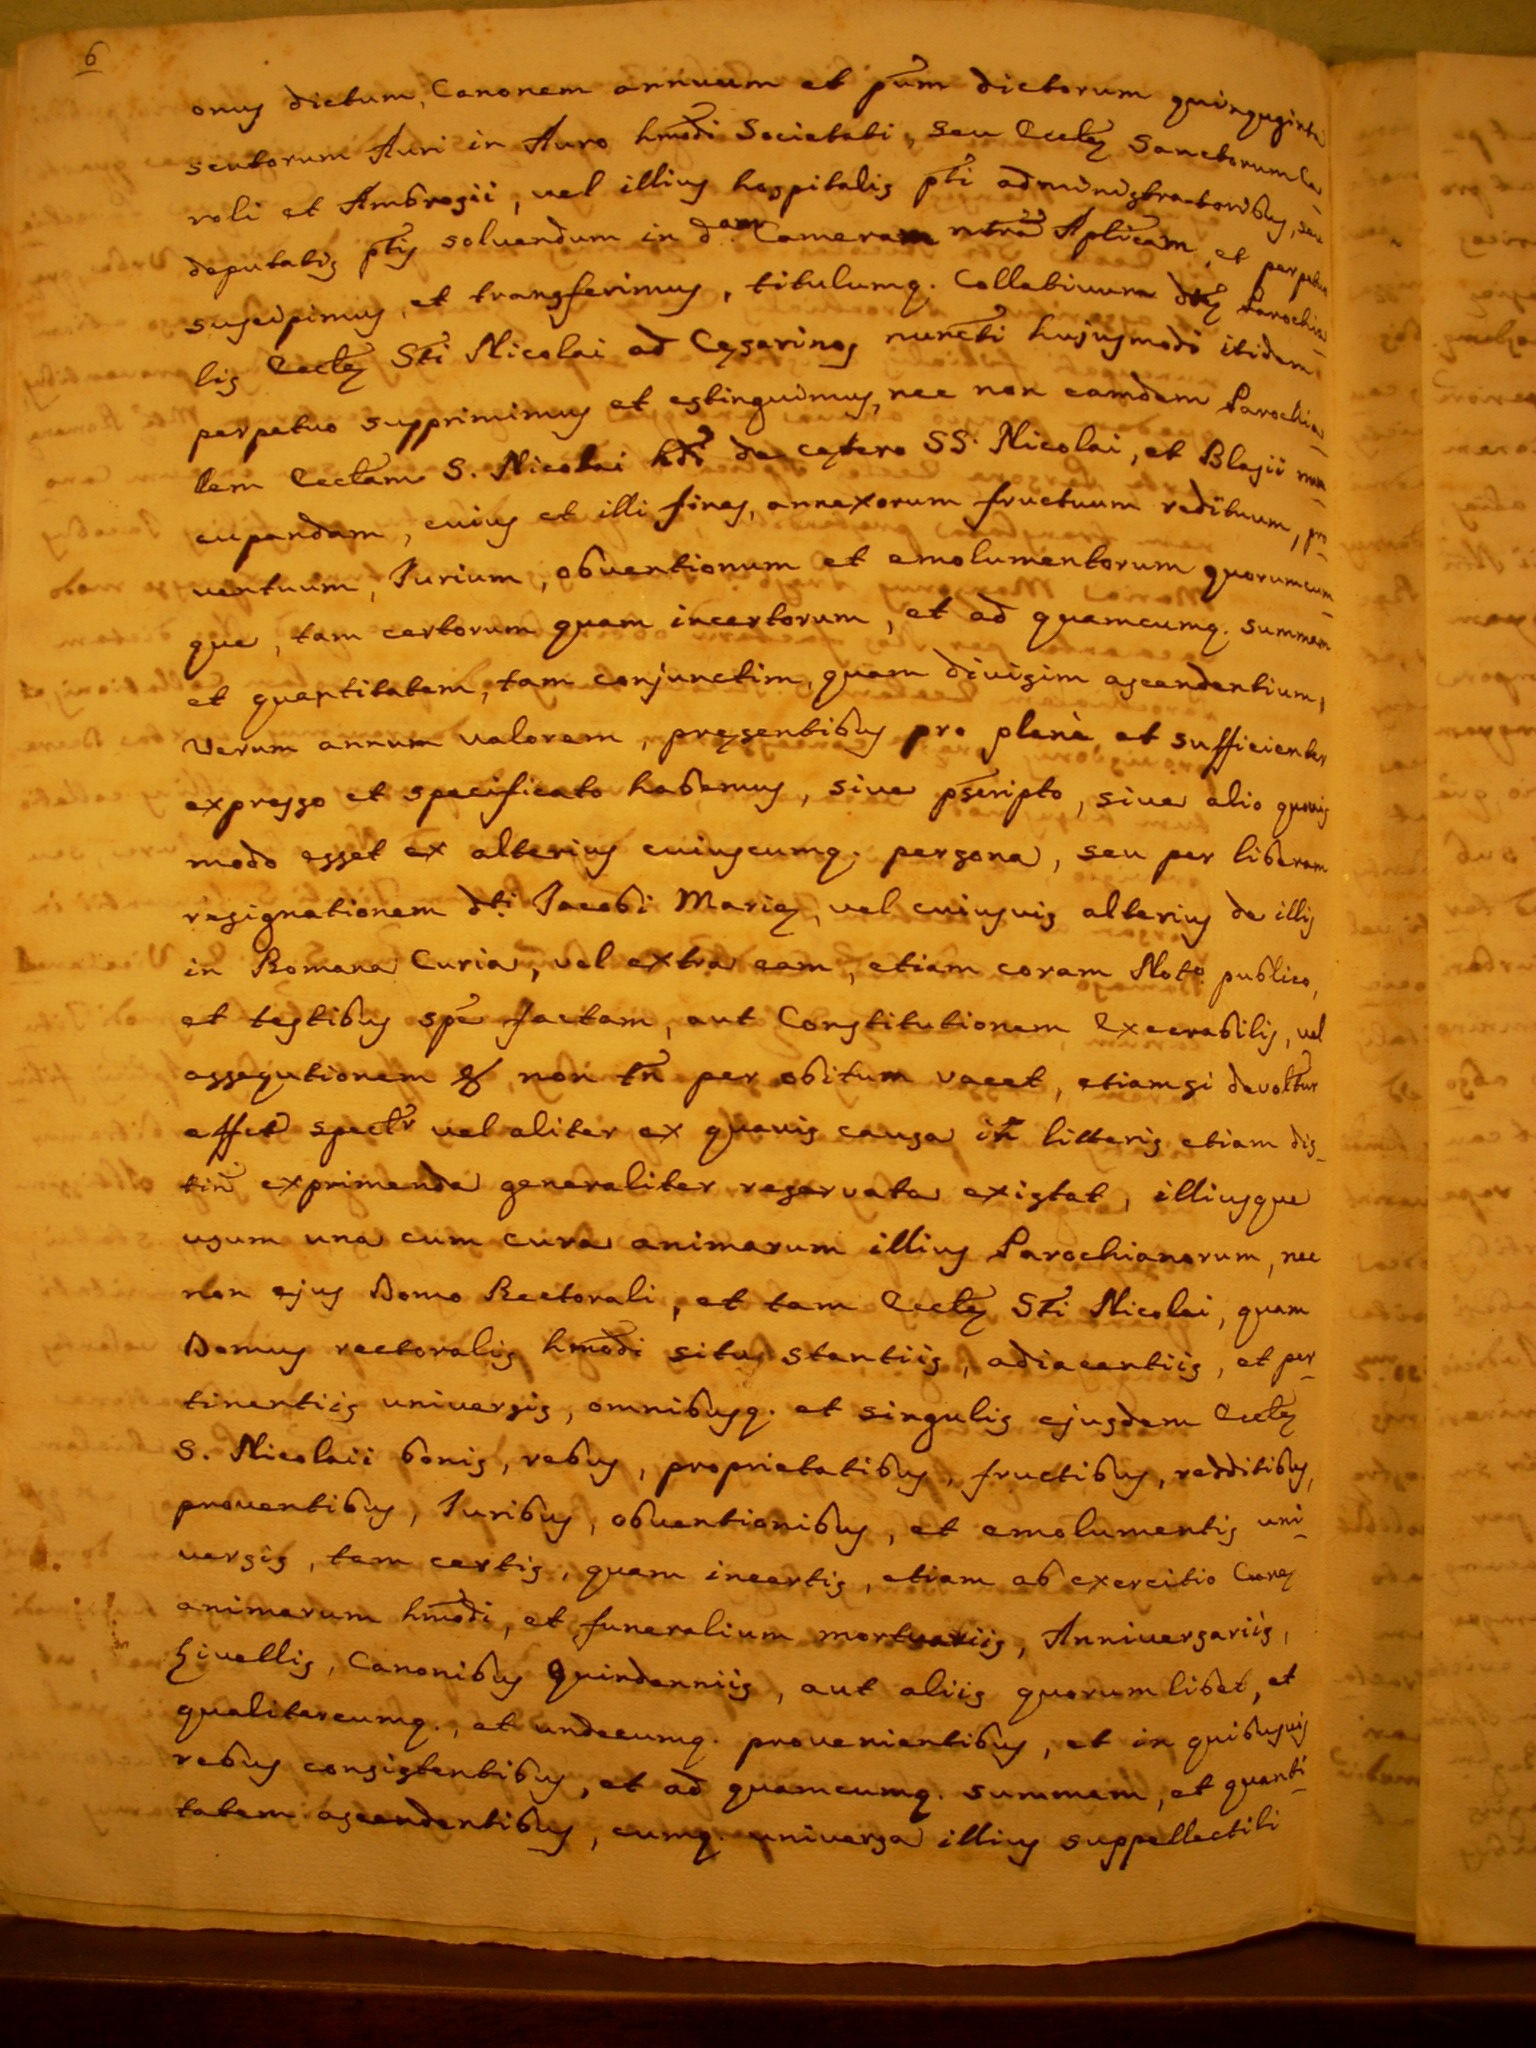 6
onus dictum, Canonem annuum et pñum dictorum quinquaginta
scutorum Auri in Auro hmõdi Societati, seu Eccłę Sanctorum Ca_
roli et Ambrosii, vel illius hospitalis pñti administratoribus, seu
deputatis ptis solvendum in d.am Cameram ñtrã Aplicam, et perpetuo
suscipimus, et transferimus, titulumq. Collativum dtę Parochia_
lis Eccłę Sti Nicolai ad Cęsarinos nuncti hujusmodi itidem
perpetuo supprimimus et estinguimus, nec non eamdem Parochia_
lem Ecclam S. Nicolai hdi de cętero SS. Nicolai, et Blasii nun_
cupandam, cuius et illi fines, annexorum fructuum redituum, pro_
ventuum, Jurium, obventionum et emolumentorum quorumcum_
que, tam certorum quam incertorum, et ad quamcumq. summam
et quantitatem, tam conjunctim, quam divisim ascendentium,
Verum annum valorem, pręsentibus pro plenè et sufficienter
expresso et specificato habemus, sive pscripto, sive alio quovis
modo esset ex alterius cuiuscumq. persona, seu per liberam
resignationem dti Jacobi Marię, vel cuiusvis alterius de illis
in Romana Curia, vel extra eam, etiam coram Noto publico,
et testibus spe factam, aut Constitutionem Execrabilis, vel
assequtionem & non tñ per obitum vacet, etiamsi devoltur
effct spectr vel aliter ex quavis causa iñ litteris etiam dis_
tinẽ exprimenda generaliter reservata existat, illiusque
usum una cum cura animarum illius Parochianorum, nec
non ejus Domo Rectorali, et tam Eccłę Sti Nicolai, quam
Domus rectoralis hmõdi situs stantiis, adiacentiis, et per_
tinentiis universis, omnibusq. et singulis ejusdem Eccłę
S. Nicolaii bonis, rebus, proprietatibus, fructibus, redditibus,
proventibus, Juribus, obventionibus, et emolumentis uni_
versis, tam certis, quam incertis, etiam ab exercitio Curę
animarum hmõdi, et funeralium mortuariis, Anniversariis,
Livellis, Canonibus Quindenniis, aut aliis quorumlibet, et
qualitercumq., et undecumq. provenientibus, et in quibusvis
rebus consistentibus, et ad quamcumq. summam, et quanti_
tatem ascendentibus, cumq. universa illius suppellectili